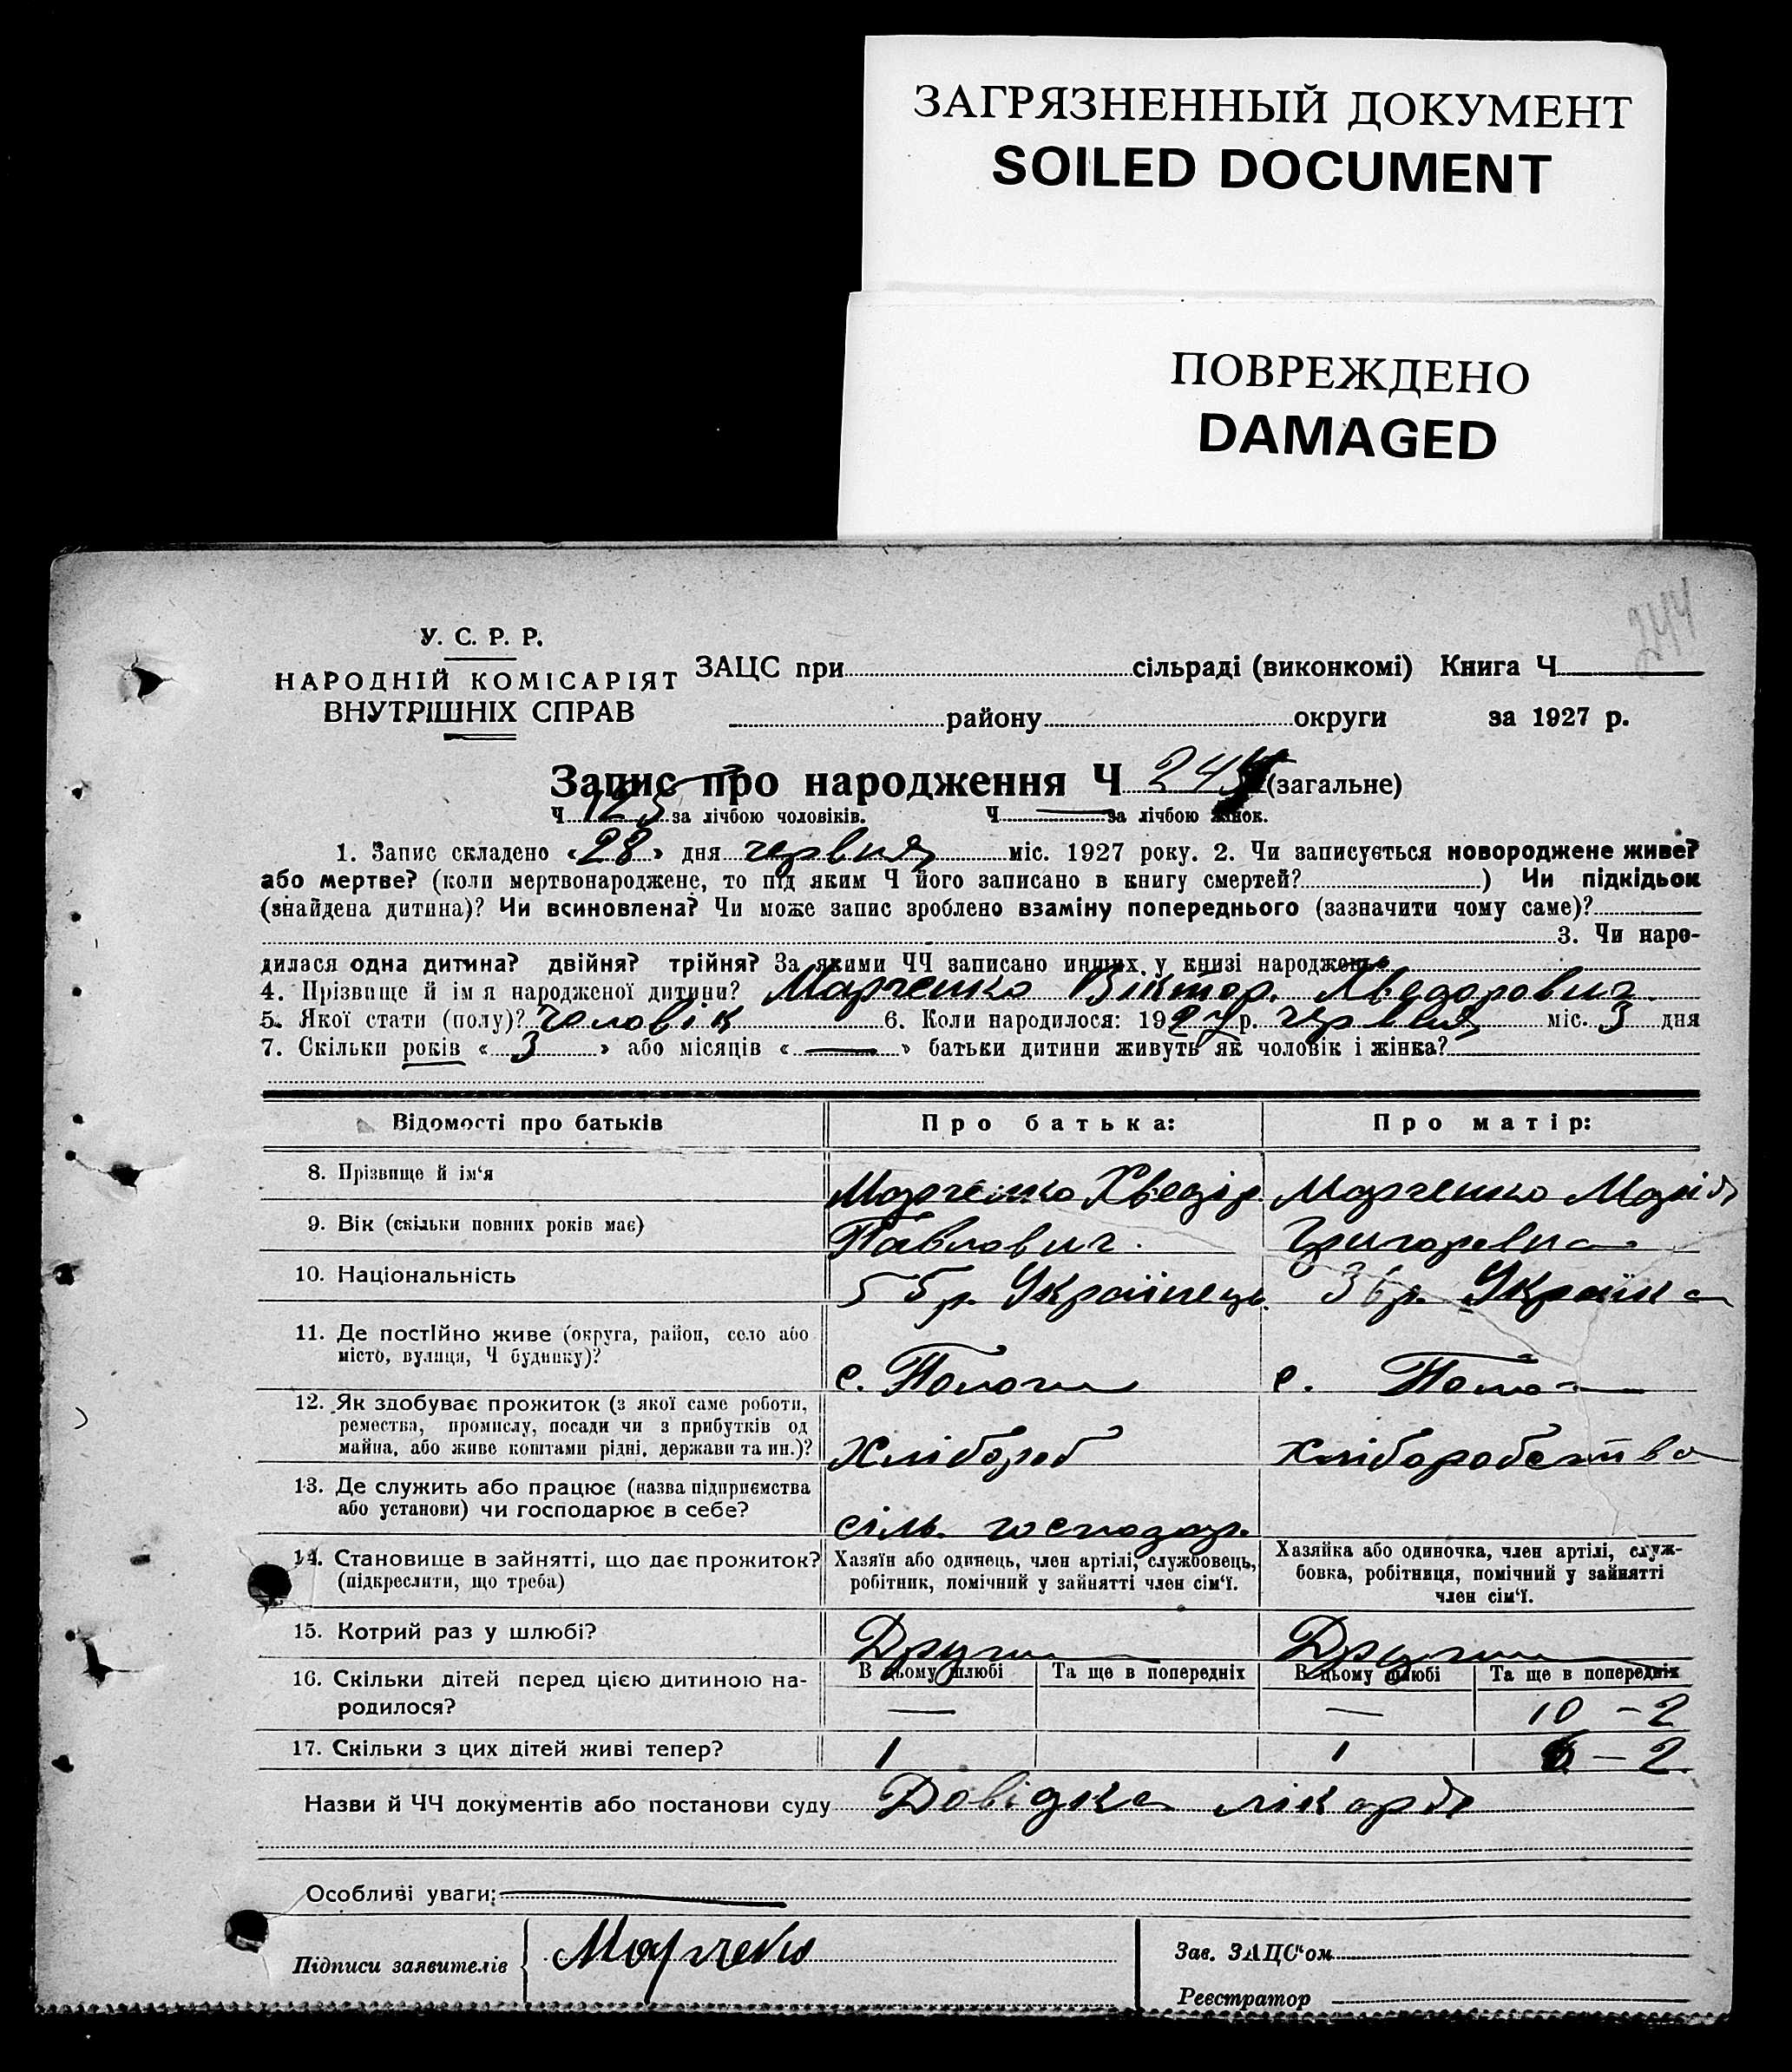 ЗАГРЯЗНЕННЫЙ ДОКУМЕНТ
SOILED DOCUMENT
ПОВРЕЖДЕНО
DAMAGED
244
У. С. Р. Р.
НАРОДНІЙ КОМІСАРІЯТ
ВНУТРІШНІХ СПРАВ
ЗАЦС при сільраді (виконкомі) Книга Ч
району округи за 1927 р.
Запис про народження Ч 244 (загальне)
Ч 125 за лічбою чоловіків. Ч — за лічбою жінок.
1. Запис складено «28» дня червня міс. 1927 року. 2. Чи записується новороджене живе?
або мертве? (коли мертвонароджене, то під яким Ч його записано в книгу смертей? ) Чи підкідьок
(знайдена дитина)? Чи всиновлена? Чи може запис зроблено взаміну попереднього (зазначити чому саме)?
3. Чи наро-
дилася одна дитина? двійня? трійня? За якими ЧЧ записано инших у книзі народжень
4. Прізвище й ім я народженої дитини? Марченко Віктор Хведорович
5. Якої стати (полу)? Чоловік 6. Коли народилося: 1927 р. червня міс. 3 дня
7. Скільки років « 3 » або місяців « — » батьки дитини живуть як чоловік і жінка?
Відомості про батьків Про батька: Про матір:
8. Прізвище й ім‘я Марченко Хведір Марченко Марія
9. Вік (скільки повних років має) Павлович. Григоревна
10. Національність 55 р. Українець 36 р. Українка
11. Де постійно живе (округа, район, село або
місто, вулиця, Ч будинку)? с. Пологи с.
12. Як здобуває прожиток (з якої саме роботи,
ремества, промислу, посади чи з прибутків од
майна, або живе коштами рідні, держави та ин.)? Хлібороб хліборобство
13. Де служить або працює (назва підприємства
або установи) чи господарює в себе? сіль. господар.
14. Становище в зайнятті, що дає прожиток?
(підкреслити, що треба)
Хазяїн або одинець, член артілі, службовець,
робітник, помічний у зайнятті член сім‘ї.
Хазяйка або одиночка, член артілі, служ-
бовка, робітниця, помічний у зайнятті
член сім‘ї.
15. Котрий раз у шлюбі? Други Други
16. Скільки дітей перед цією дитиною на-
родилося?
В цьому шлюбі Та ще в попередніх В цьому шлюбі Та ще в попередніх
— — 10 – 2
17. Скільки з цих дітей живі тепер? 1 1 6 – 2
Назви й ЧЧ документів або постанови суду Довідка лікаря
Особливі уваги: —
Підписи заявителів Марченко
Зав. ЗАЦС“ом
Реєстратор